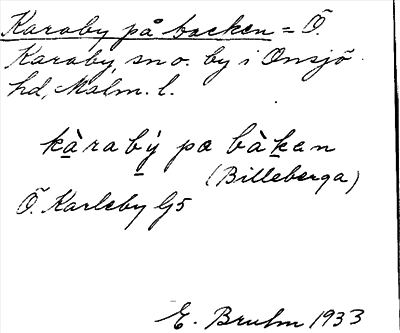 Karaby på backen = Ö.
Karaby, sn o. by i Onsjö
hd, Malm. l.
kàrabý pæ bàkan
(Billeberga)
Ö. Karleby G5
E. Bruhn 1933